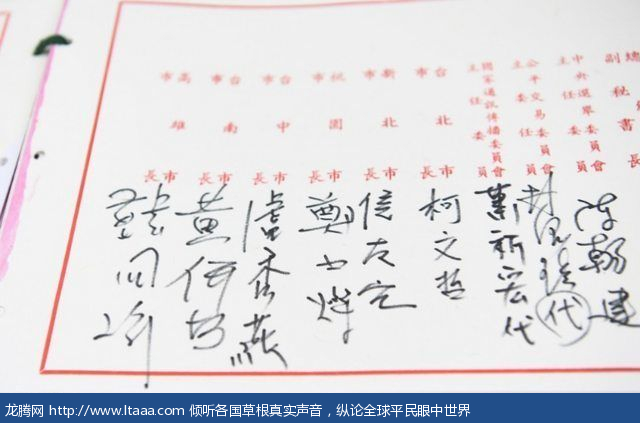 副秘書長
中央選舉委員會
主任委員
公平交易委員會
主任委員
國家通訊傳播委員會
主任委員
台北市市長
新北市市長
桃園市市長
台中市市長
台南市市長
高雄市市長
陳朝建
代
蕭祈宏代
柯文哲
侯友宜
鄭文燦
盧秀燕
黃偉哲
韓國瑜
龙腾网 http://www.ltaaa.com 倾听各国草根真实声音，纵论全球平民眼中世界